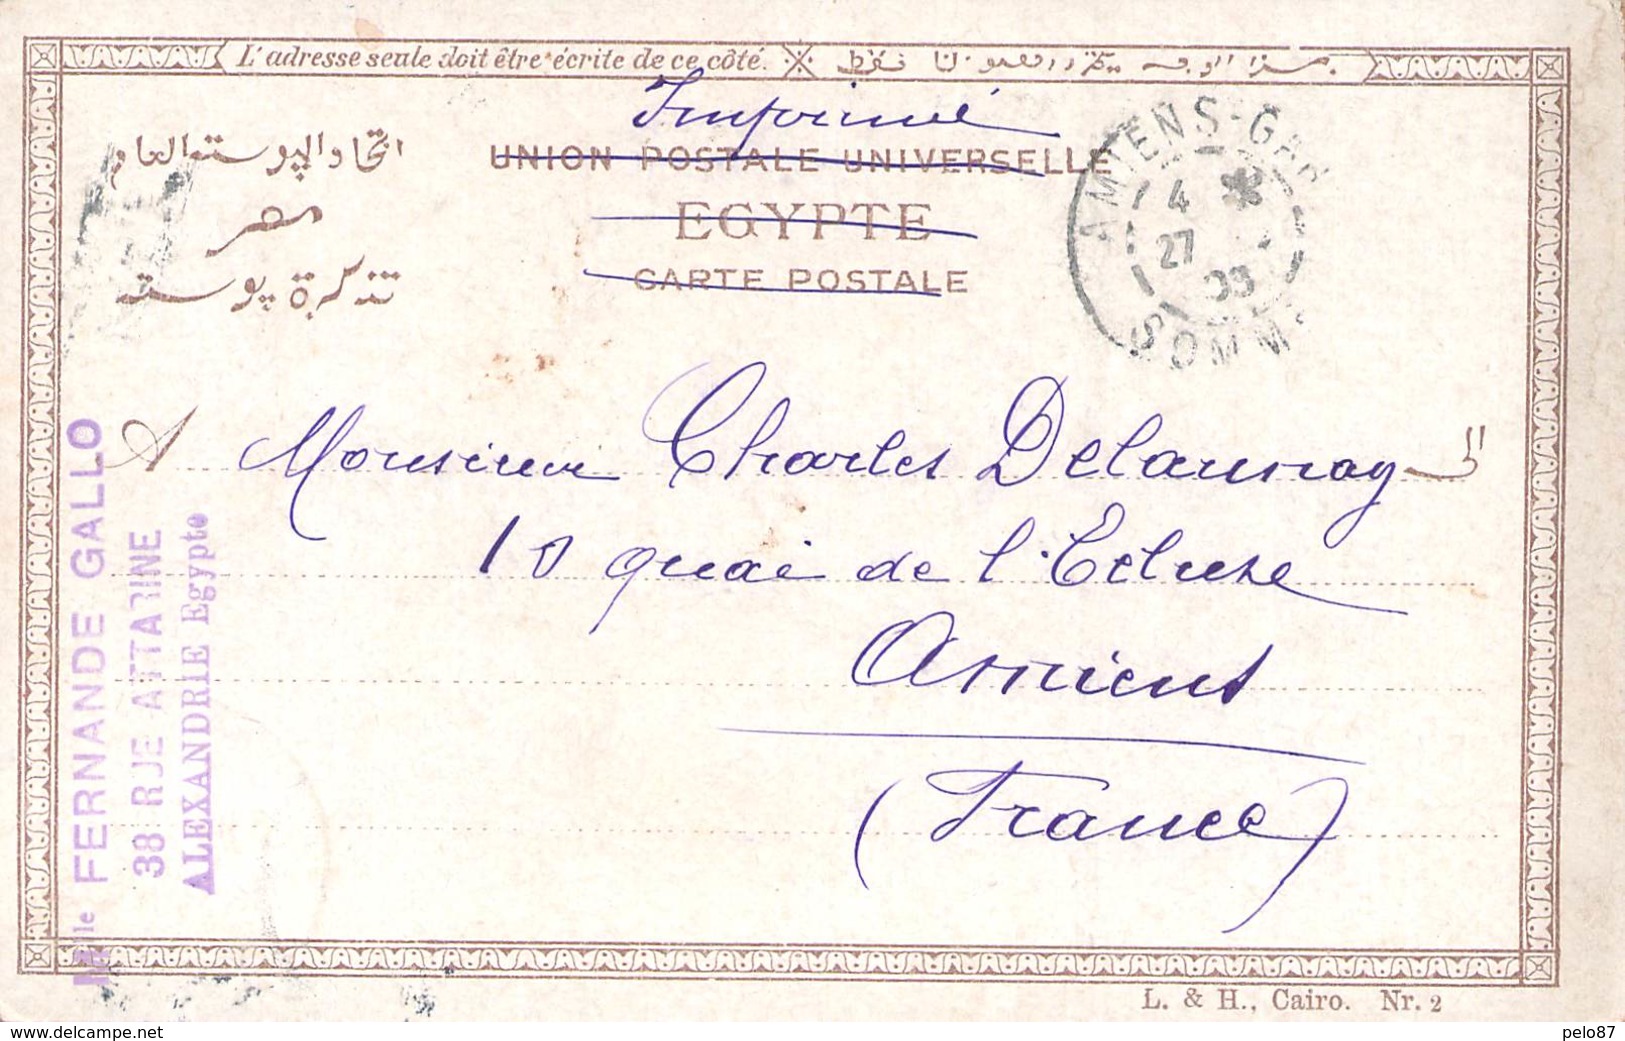 L'adresse seule doit être écrite de ce côté.
Imprimé
اتحاد البوستة العام
UNION POSTALE UNIVERSELLE
مصر
EGYPTE
تذكرة بوستة
CARTE POSTALE
AMIENS-GAR
4
27
SOMM
A Monsieur Charles Delaunay الى
10 quai de l'Ecluse
Amiens
(France)
Mlle FERNANDE GALLO
38 RUE ATTARINE
ALEXANDRIE Egypte
L. & H., Cairo. Nr. 2
www.delcampe.net
pelo87